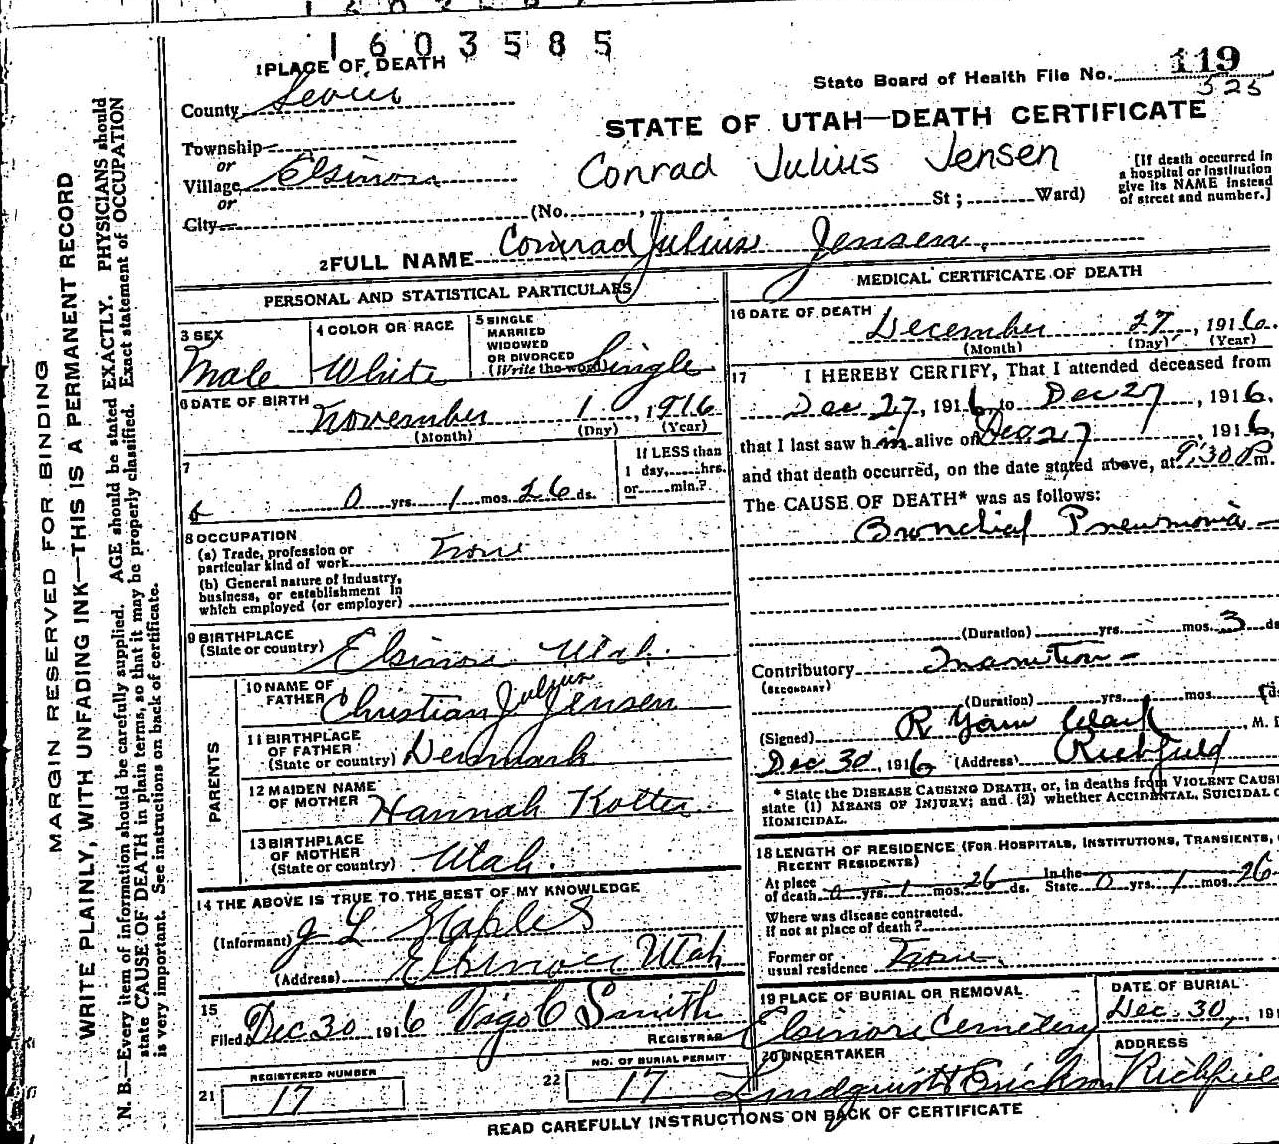 1603585
1 PLACE OF DEATH
State Board of Health File No. 119
525
County Sevier
STATE OF UTAH—DEATH CERTIFICATE
Township
or
Conrad Julius Jensen
Village Elsinore
or
City (No. , St ; Ward)
[If death occurred in
a hospital or institution
give its NAME instead
of street and number.]
2 FULL NAME Conrad Julius Jensen.
PERSONAL AND STATISTICAL PARTICULARS
3 SEX
Male
4 COLOR OR RACE
White
5 SINGLE
MARRIED
WIDOWED
OR DIVORCED
(Write the word) Single
6 DATE OF BIRTH November 1, 1916
(Month) (Day) (Year)
7
0 yrs. 1 mos. 26 ds.
If LESS than
1 day, hrs.
or min.?
8 OCCUPATION
(a) Trade, profession or
particular kind of work None
(b) General nature of industry,
business, or establishment in
which employed (or employer)
9 BIRTHPLACE
(State or country) Elsinore Utah.
PARENTS
10 NAME OF
FATHER Christian Julius Jensen
11 BIRTHPLACE
OF FATHER
(State or country) Denmark
12 MAIDEN NAME
OF MOTHER Hannah
13 BIRTHPLACE
OF MOTHER
(State or country) Utah.
14 THE ABOVE IS TRUE TO THE BEST OF MY KNOWLEDGE
(Informant) J L Staples
(Address) Elsinore Utah
15
Filed Dec 30 1916 Vigo C Smith
REGISTRAR
21 REGISTERED NUMBER
17
22 NO. OF BURIAL PERMIT
17
MEDICAL CERTIFICATE OF DEATH
16 DATE OF DEATH December 27, 1916.
(Month) (Day) (Year)
17 I HEREBY CERTIFY, That I attended deceased from
Dec 27, 1916 to Dec 27, 1916,
that I last saw him alive on Dec 27, 1916,
and that death occurred, on the date stated above, at 9:30 P m.
The CAUSE OF DEATH* was as follows:
Bronchial Pneumonia
(Duration) yrs. mos. 3 ds
Contributory Inanition
(SECONDARY)
(Duration) yrs. mos. ds
(Signed) R , M. D
Dec 30, 1916 (Address) Richfield
* State the DISEASE CAUSING DEATH, or, in deaths from VIOLENT CAUSE
state (1) MEANS OF INJURY; and (2) whether ACCIDENTAL, SUICIDAL O
HOMICIDAL.
18 LENGTH OF RESIDENCE (FOR HOSPITALS, INSTITUTIONS, TRANSIENTS,
RECENT RESIDENTS)
At place
of death 0 yrs. 1 mos. 26 ds. In the State 0 yrs. 1 mos. 26
Where was disease contracted.
if not at place of death?
Former or
usual residence None.
19 PLACE OF BURIAL OR REMOVAL
Elsinore Cemetery
DATE OF BURIAL
Dec. 30, 191
20 UNDERTAKER
Lindquist & Erickson
ADDRESS
Richfield
READ CAREFULLY INSTRUCTIONS ON BACK OF CERTIFICATE
MARGIN RESERVED FOR BINDING
WRITE PLAINLY, WITH UNFADING INK—THIS IS A PERMANENT RECORD
N. B.—Every item of information should be carefully supplied. AGE should be stated EXACTLY. PHYSICIANS should
state CAUSE OF DEATH in plain terms, so that it may be properly classified. Exact statement of OCCUPATION
is very important. See instructions on back of certificate.